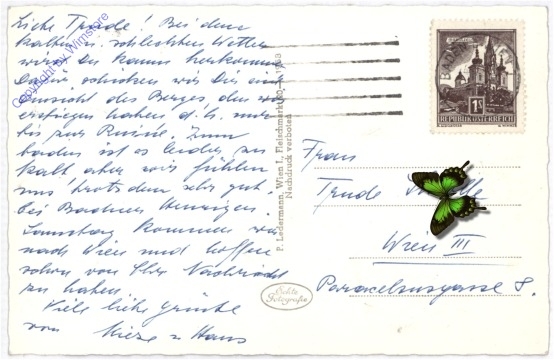 Liebe Trude! Bei dem
kalten u. schlechten Wetter
wirst Du kaum herkommen
Daher schicken wir Dir eine
Ansicht des Berges, den wir
erstiegen haben d. h. nur
bis zur Ruine. Zum
baden ist es leider zu
kalt aber wir fühlen
uns trotzdem sehr gut
bei Badner Heurigen.
Samstag kommen wir
nach Wien und hoffen
schon von Nachricht
zu haben
Viele liebe Grüße
von Mieze u Hans
Copyright by Wimstore
P. Ledermann, Wien I., Fleischmarkt
Nachdruck verboten
Echte
Fotografie
BADEN
1S
REPUBLIK ÖSTERREICH
Frau
Trude
Wien III
Paracelsusgasse 8.